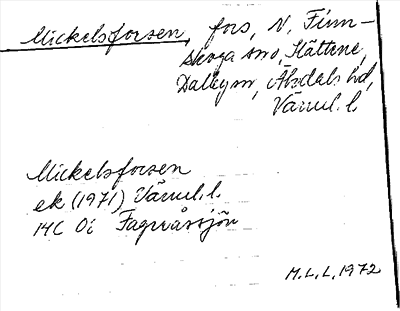 Mickelsforsen, fors, N. Finn-
skoga sn, Hättene,
Dalby sn, Älvdals hd,
Värml. l.
Mickelsforsen
ek (1971) Värml. l.
14C 0i Fageråssjön
M.L.L. 1972